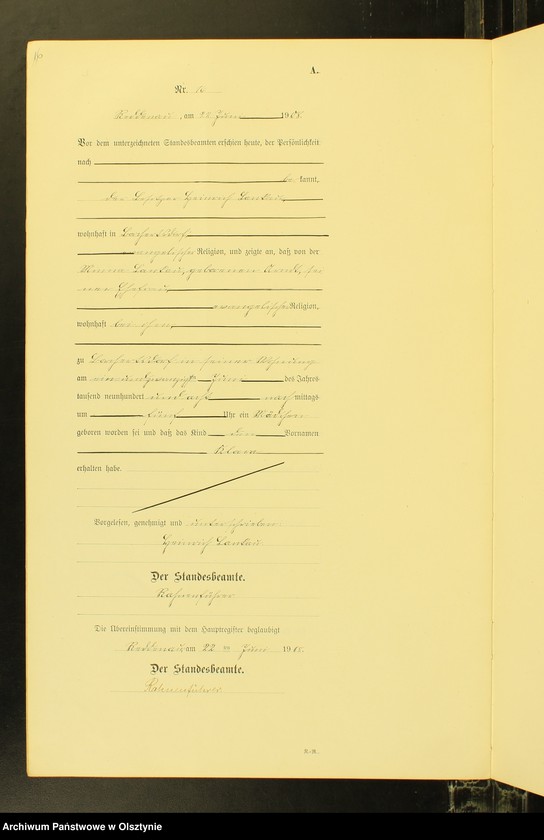 A.
Nr.
Reddenau, am 22 Juni 1908.
Vor dem unterzeichneten Standesbeamten erschien heute, der Persönlichkeit
nach
be kannt,
der Besitzer Heinrich Lankau
wohnhaft in
evangelischer Religion, und zeigte an, daß von der
Lankau, geborenen Arndt, sei
ner Ehefrau
evangelischer Religion,
wohnhaft bei ihm
zu in seiner Wohnung
am ein und zwanzigsten Juni des Jahres
tausend neunhundert und acht nach mittags
um fünf Uhr ein Mädchen
geboren worden sei und daß das Kind den Vornamen
Klara
erhalten habe.
Vorgelesen, genehmigt und unterschrieben
Heinrich Lankau
Der Standesbeamte.
Die Übereinstimmung mit dem Hauptregister beglaubigt
Reddenau am 22 ten Juni 1908.
Der Standesbeamte.
Archiwum Państwowe w Olsztynie